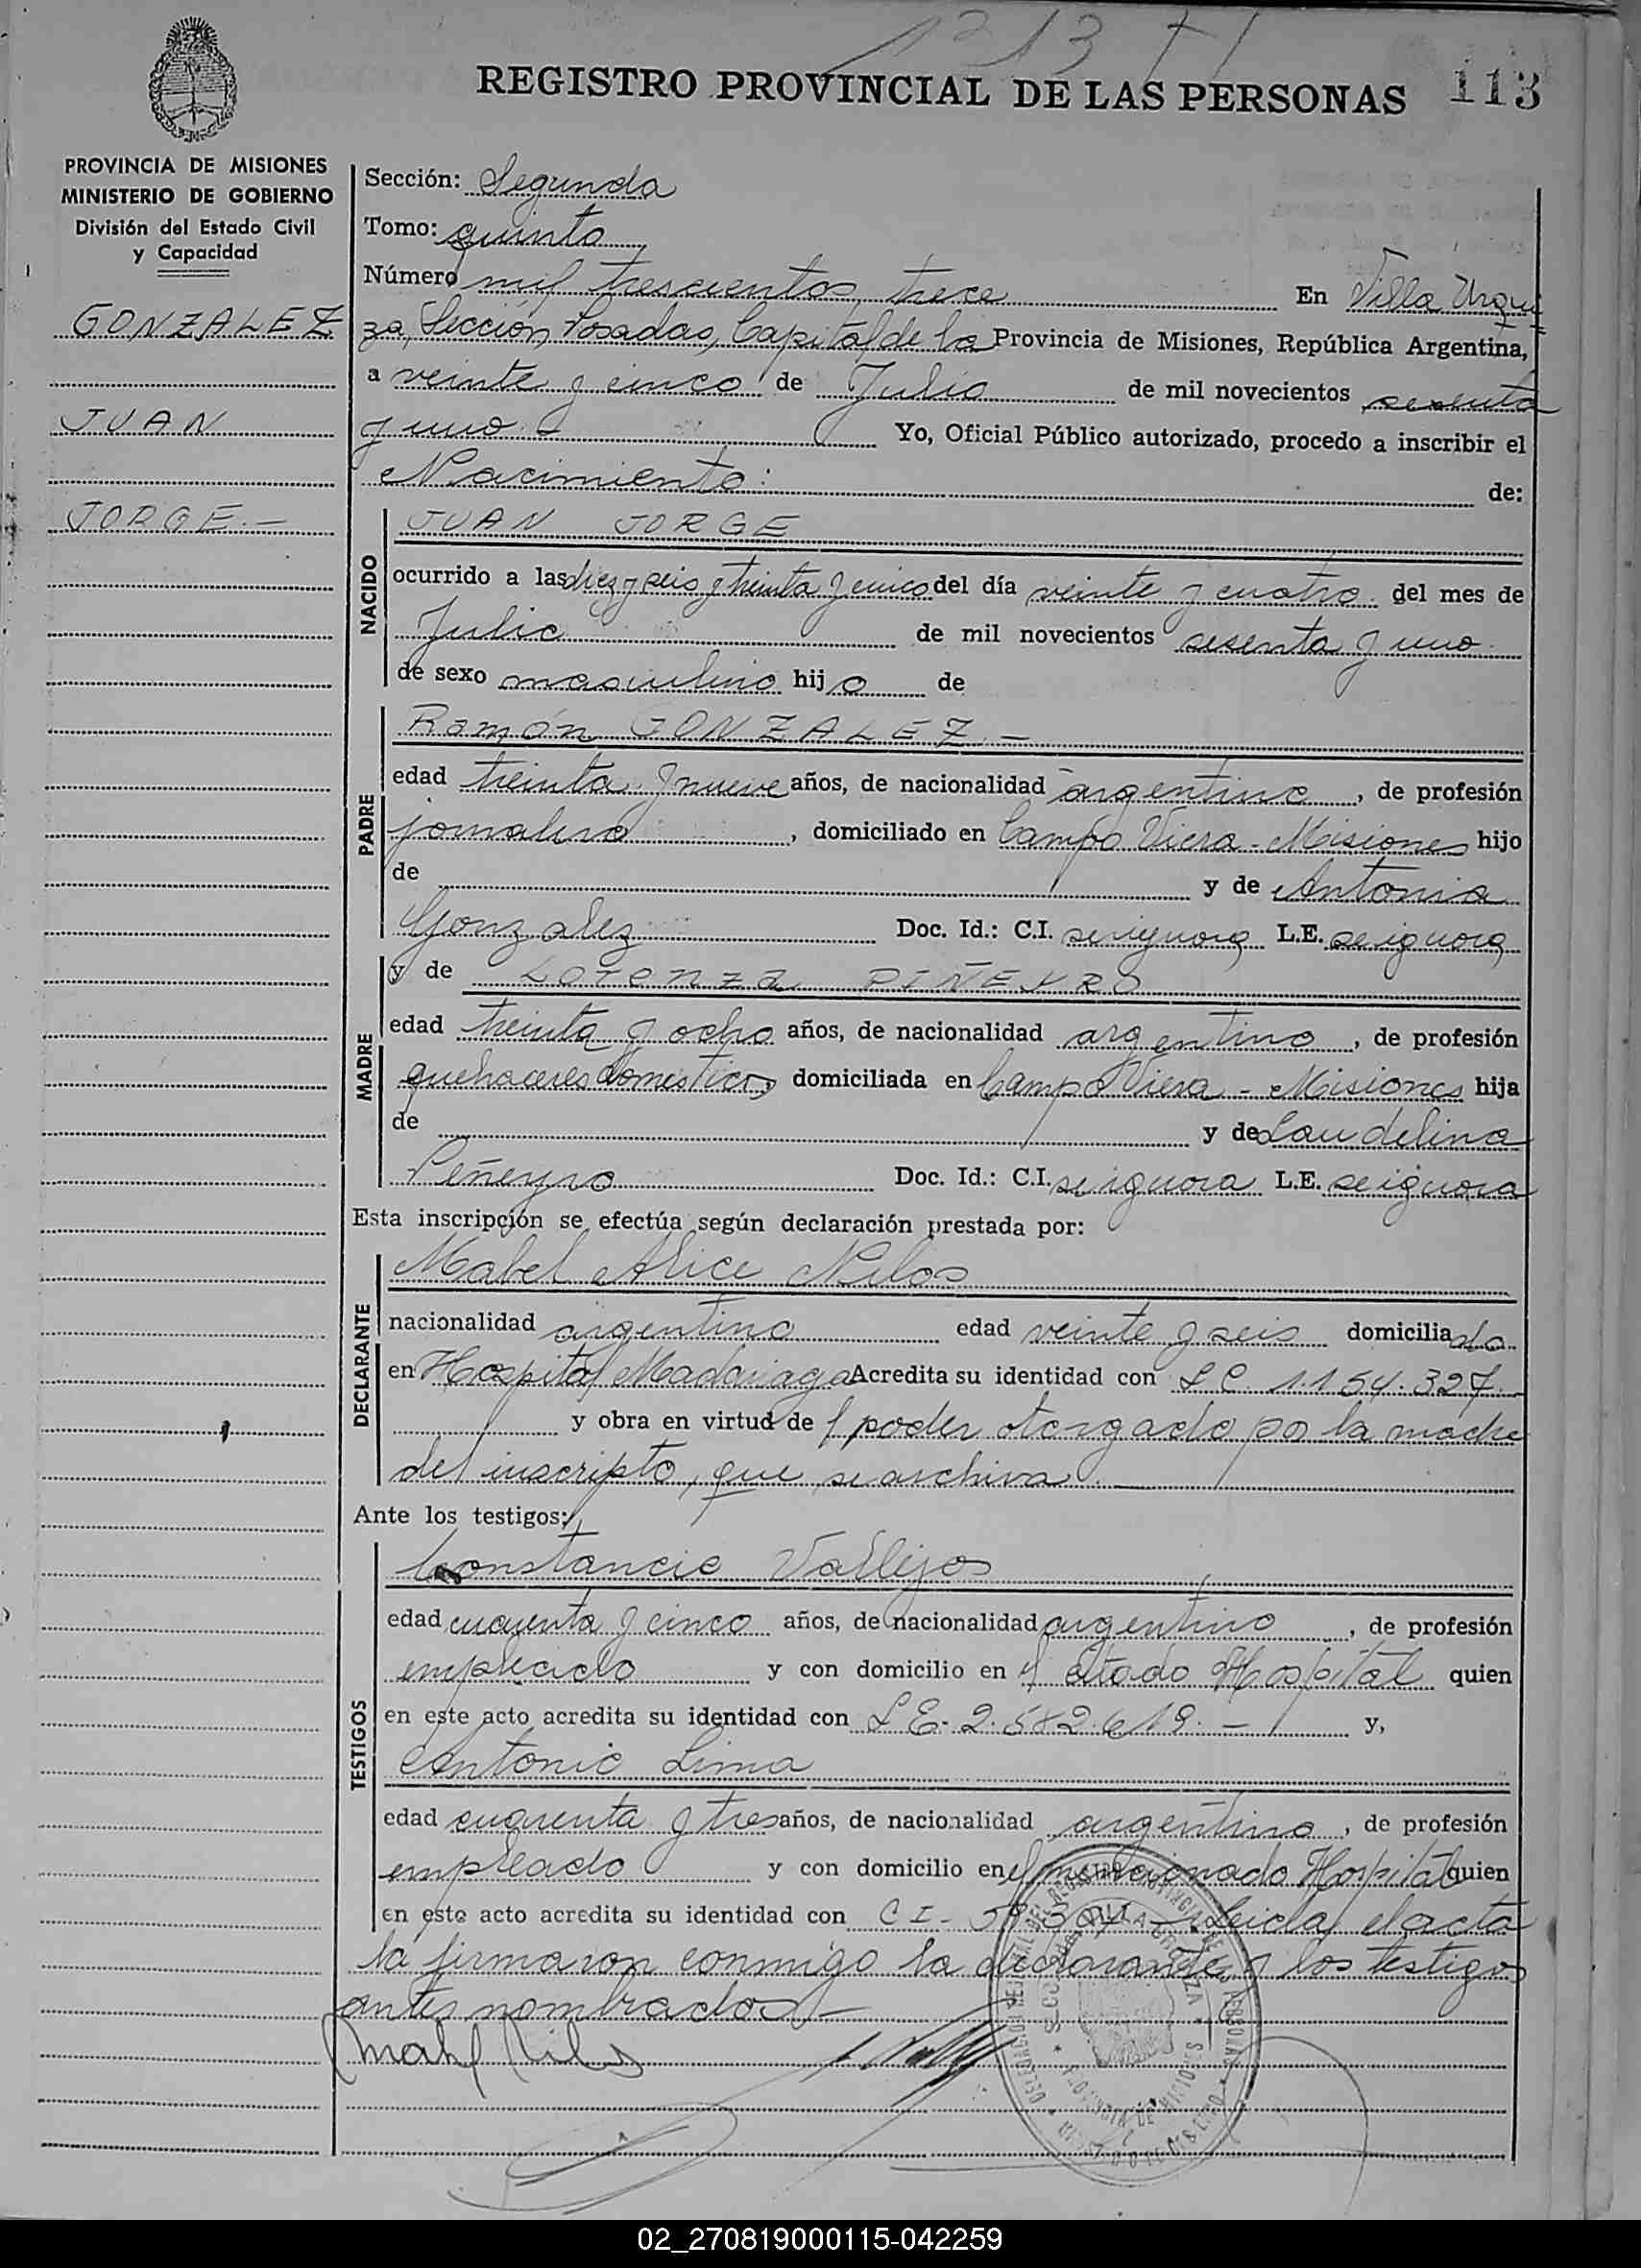 1313 + 1
REGISTRO PROVINCIAL DE LAS PERSONAS 113
PROVINCIA DE MISIONES
MINISTERIO DE GOBIERNO
División del Estado Civil
y Capacidad
GONZALEZ
JUAN
JORGE.—
Sección: Segunda
Tomo: quinto
Número mil trescientos trece En Villa Urqui
za, Sección Posadas, Capital de la Provincia de Misiones, República Argentina,
a veinte y cinco de Julio de mil novecientos sesenta
y uno Yo, Oficial Público autorizado, procedo a inscribir el
Nacimiento: de:
NACIDO
JUAN JORGE
ocurrido a las diez y seis y treinta y cinco del día veinte y cuatro del mes de
Julio de mil novecientos sesenta y uno
de sexo masculino hijo de
PADRE
Ramón GONZALEZ.—
edad treinta y nueve años, de nacionalidad argentino, de profesión
jornalero, domiciliado en Campo Viera - Misiones hijo
de y de Antonia
Gonzalez Doc. Id.: C.I. se ignora L.E. se ignora
MADRE
y de Lorenza PIÑEYRO
edad treinta y ocho años, de nacionalidad argentina, de profesión
quehaceres domesticos domiciliada en Campo Viera - Misiones hija
de y de Laudelina
Peñeyro Doc. Id.: C.I. se ignora L.E. se ignora
Esta inscripción se efectúa según declaración prestada por:
DECLARANTE
Mabel Alice Nilos
nacionalidad argentina edad veinte y seis domiciliada
en Hospital Madariaga Acredita su identidad con L C. 1.154.327.
y obra en virtud de poder otorgado por la madre
del inscripto, que se archiva.
Ante los testigos:
TESTIGOS
Constancio Vallejos
edad cuarenta y cinco años, de nacionalidad argentino, de profesión
empleado y con domicilio en el citado Hospital quien
en este acto acredita su identidad con L E. 2.582.619.— y,
Antonio Lima
edad cuarenta y tres años, de nacionalidad argentino, de profesión
empleado y con domicilio en el mencionado Hospital quien
en este acto acredita su identidad con C I - Leida el acta
la firmaron conmigo la declarante y los testigos
antes nombrados.—
Mabel Nilos
02_270819000115-042259